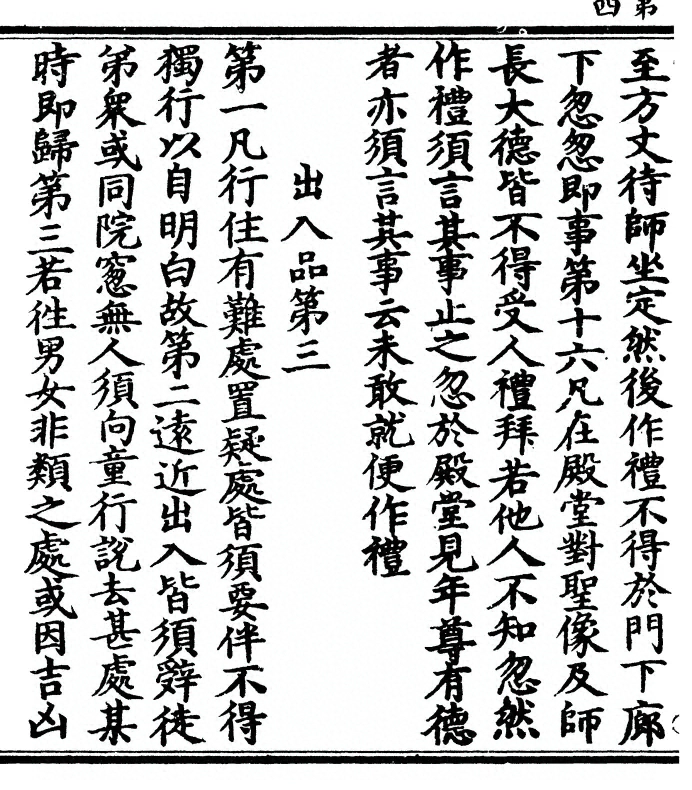 第四
至方丈待師坐定然後作禮不得於門下廊
下忽忽即事第十六凡在殿堂對聖像及師
長大德皆不得受人禮拜若他人不知忽然
作禮須言其事止之忽於殿堂見年尊有德
者亦須言其事云未敢就便作禮
出入品第三
第一凡行住有難處置疑處皆須要伴不得
獨行以自明白故第二遠近出入皆須辤徒
弟衆或同院窓無人須向童行說去甚處某
時即歸第三若徃男女非類之處或因吉凶